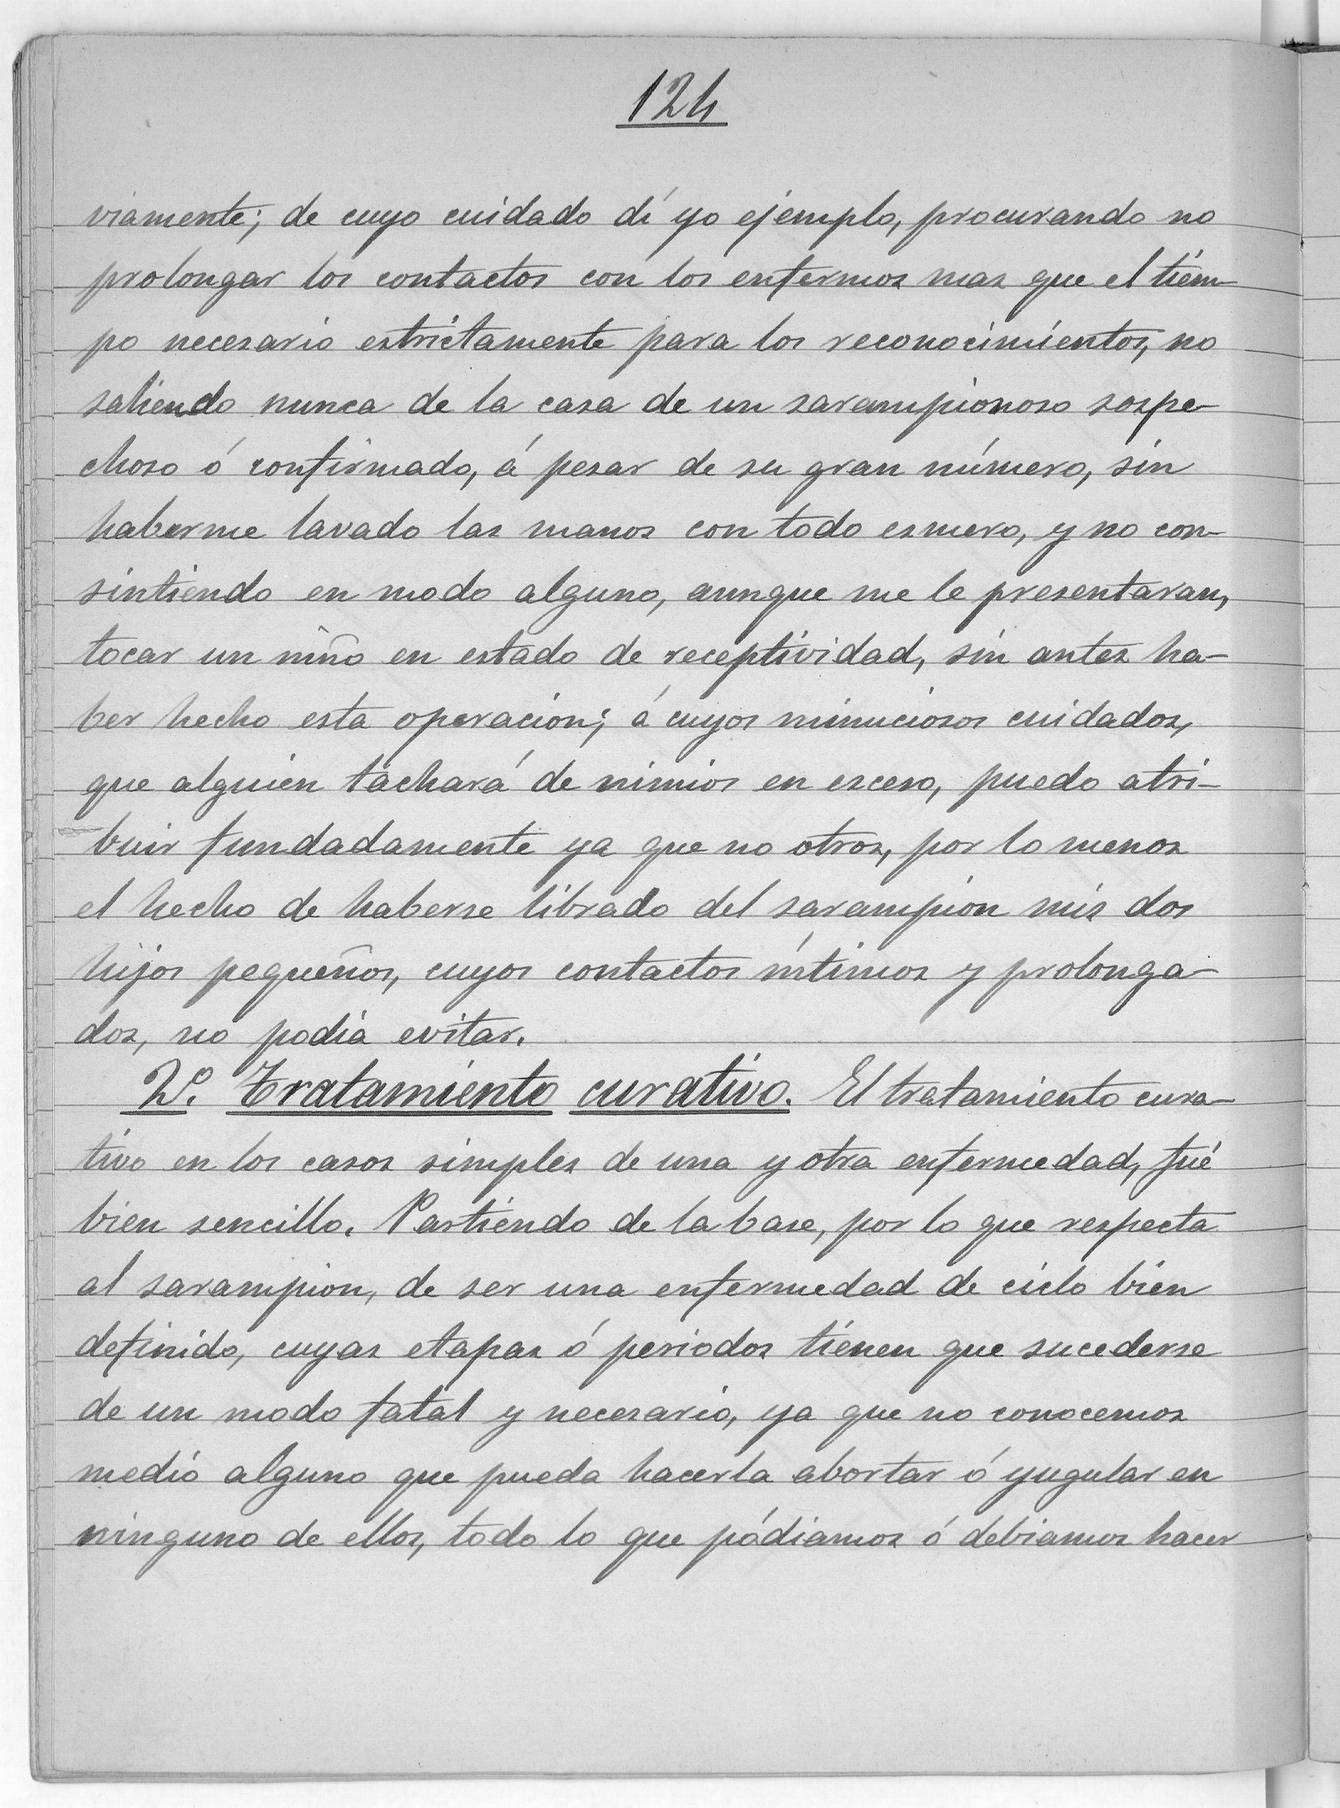 124
viamente; de cuyo cuidado dí yo ejemplo, procurando no
prolongar los contactos con los enfermos mas que el tiem-
po necesario estrictamente para los reconocimientos, no
saliendo nunca de la casa de un sarampionoso sospe-
choso ó confirmado, á pesar de su gran número, sin
haberme lavado las manos con todo esmero, y no con-
sintiendo en modo alguno, aunque me le presentaran,
tocar un niño en estado de receptividad, sin antes ha-
ber hecho esta operacion; á cuyos minuciosos cuidados,
que alguien tachará de nimios en exceso, puedo atri-
buir fundadamente ya que no otros, por lo menos
el hecho de haberse librado del sarampion mis dos
hijos pequeños, cuyos contactos íntimos y prolonga-
dos, no podia evitar.
2º. Tratamiento curativo. El tratamiento cura-
tivo en los casos simples de una y otra enfermedad, fué
bien sencillo. Partiendo de la base, por lo que respecta
al sarampion, de ser una enfermedad de ciclo bien
definido, cuyas etapas ó periodos tienen que sucederse
de un modo fatal y necesario, ya que no conocemos
medio alguno que pueda hacerla abortar ó yugular en
ninguno de ellos, todo lo que pódiamos ó debiamos hacer